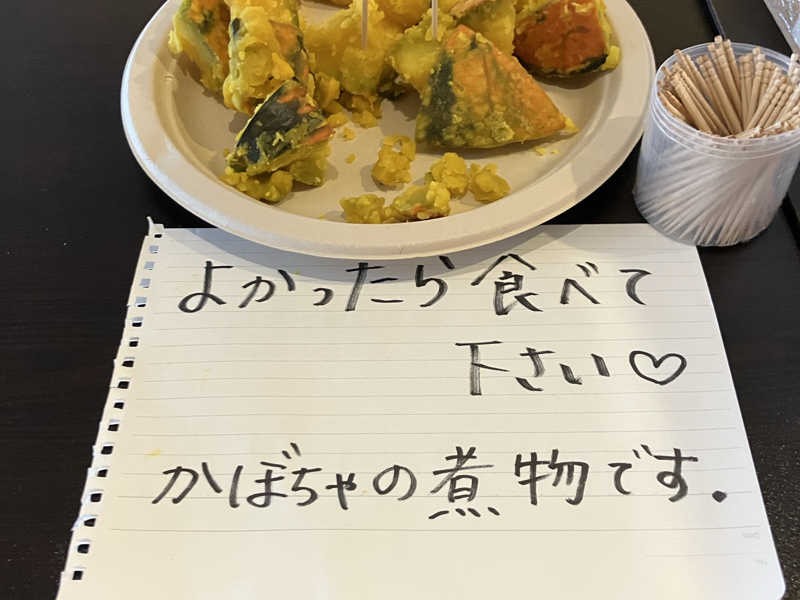 よかったら食べて
下さい♡
かぼちゃの煮物です.